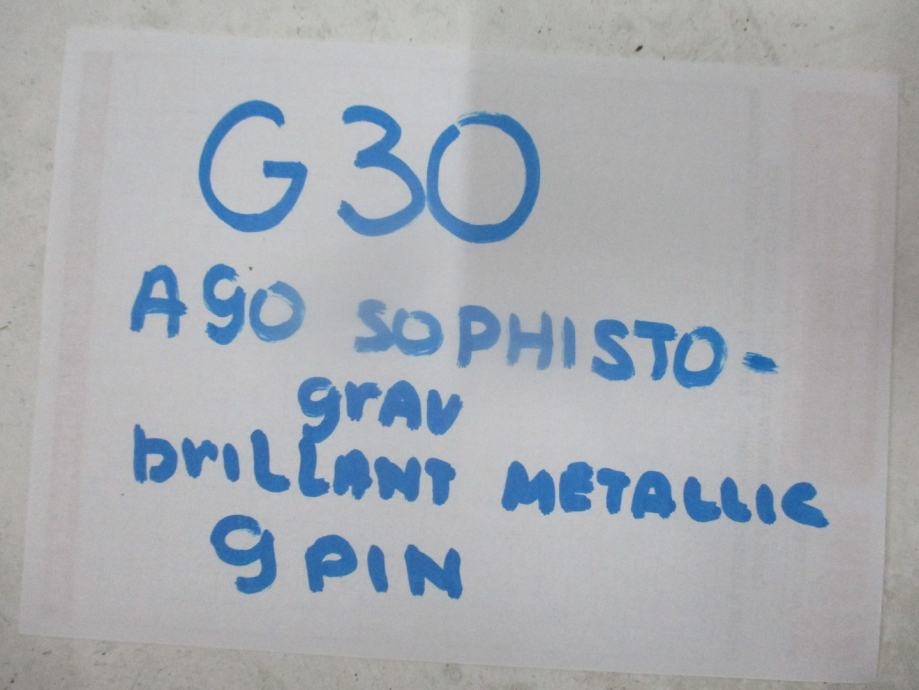 G30
A90 SOPHISTO-
grav
brillANT METALLIC
9 PIN